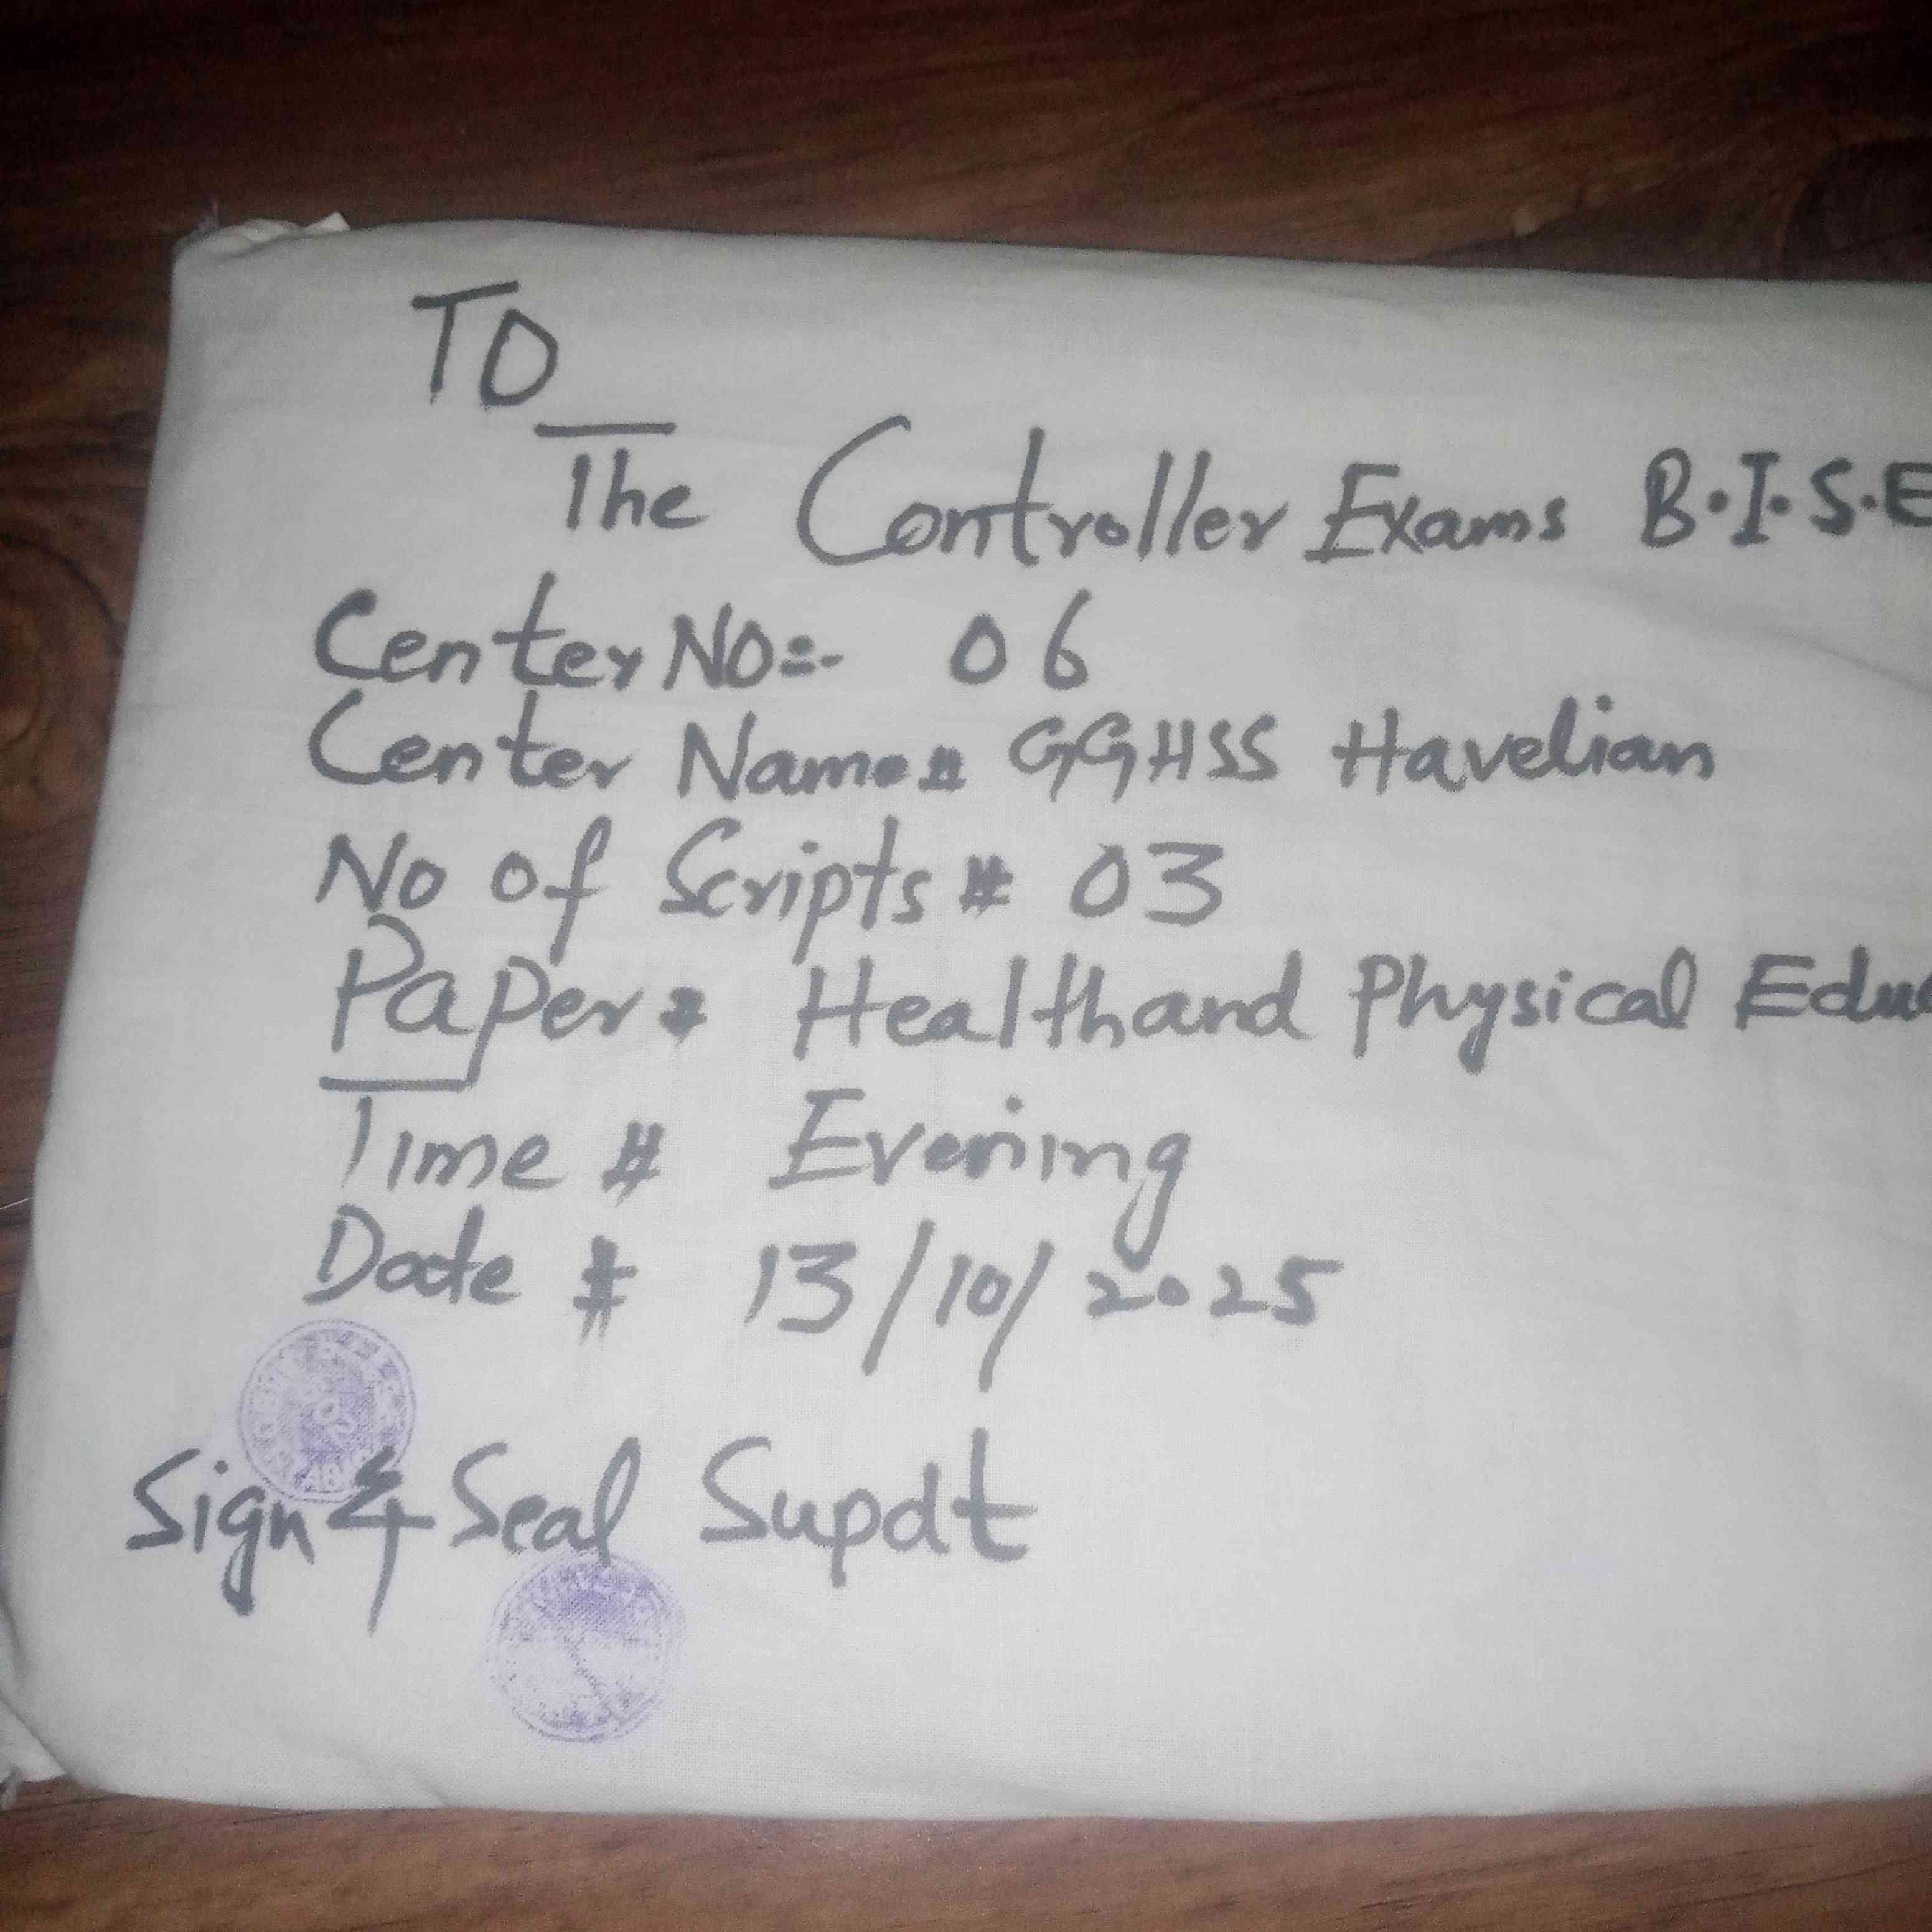 TO
The Controller Exams B.I.S.E
Center NO:- 06
Center Name # GGHSS Havelian
No of Scripts # 03
Paper # Health and Physical
Time # Evening
Date # 13/10/2025
Sign & Seal Supdt